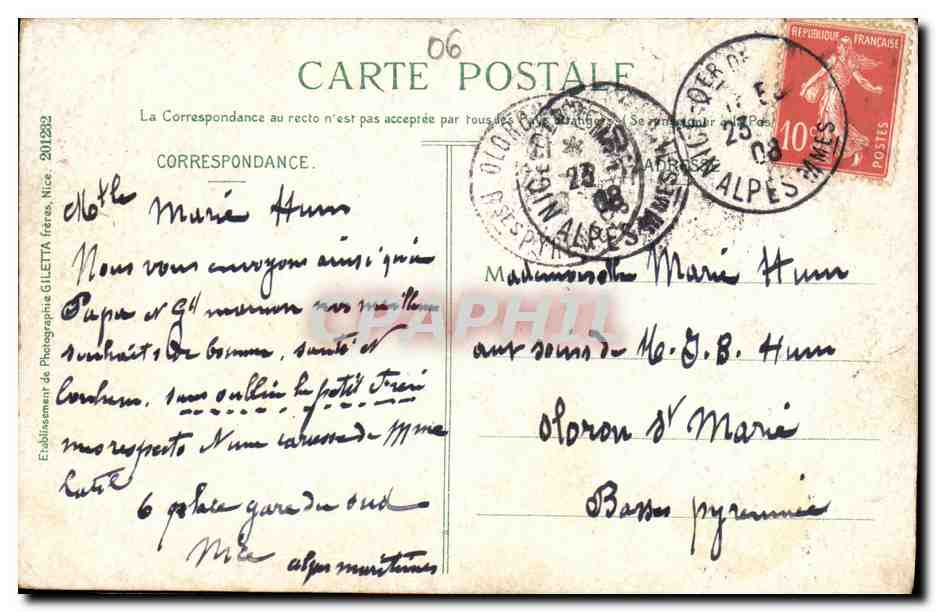 06
CARTE POSTALE
La Correspondance au recto n'est pas acceptée par tous les Pays étrangers (Se renseigner à la Poste)
CORRESPONDANCE.
ADRESSE
RÉPUBLIQUE FRANÇAISE
10c
POSTES
NICE
ALPES MMES
23
08
OLORON
BSES PYR
23
08
ALPES MMES
Etablissement de Photographie GILETTA frères, Nice. 201232
Mlle Marie Hum
Nous vous envoyons ainsi qu'à
Papa et Gd maman nos meilleurs
souhaits de bonne, santé et
bonheur, sans oublier le petit Frère
mes respects et une caresse de Mme
6 place gare du sud
Nice
alpes maritimes
Mademoiselle Marie Hum
aux soins de M. J. B. Hum
Oloron St Marie
Basses pyrennée
CPAPHIL